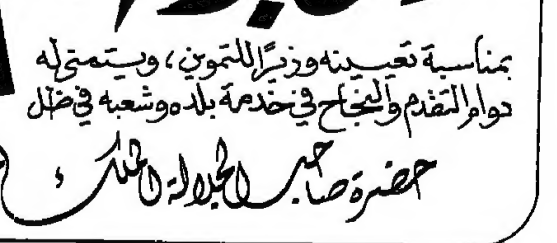 بمناسبة تعيينه وزيرًا للتموين ، ويتمنى له
دوام التقدم والنجاح في خدمة بلده وشعبه في ظل
حضرة صاحب الجلالة الملك